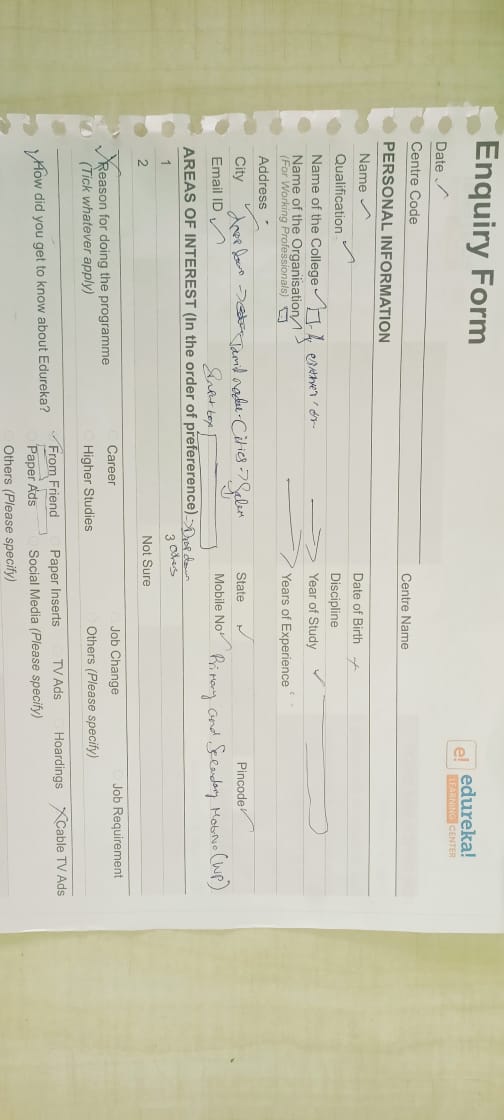 Enquiry Form
e! edureka!
LEARNING CENTER
Date
Centre Code
Centre Name
PERSONAL INFORMATION
Name
Date of Birth
Qualification
Discipline
Name of the College either/or
Year of Study
Name of the Organisation
(For Working Professionals)
Years of Experience
Address
City drop down Tamil nadu-Cities Salem
State
Pincode
Email ID
Mobile No Primary and Secondary Mob No (WP)
AREAS OF INTEREST (In the order of prefererence) Drop down
1
3 Others
2
Not Sure
Reason for doing the programme
(Tick whatever apply)
Career
Job Change
Job Requirement
Higher Studies
Others (Please specify)
How did you get to know about Edureka?
From Friend
Paper Inserts
TV Ads
Hoardings
Cable TV Ads
Paper Ads
Social Media (Please specify)
Others (Please specify)